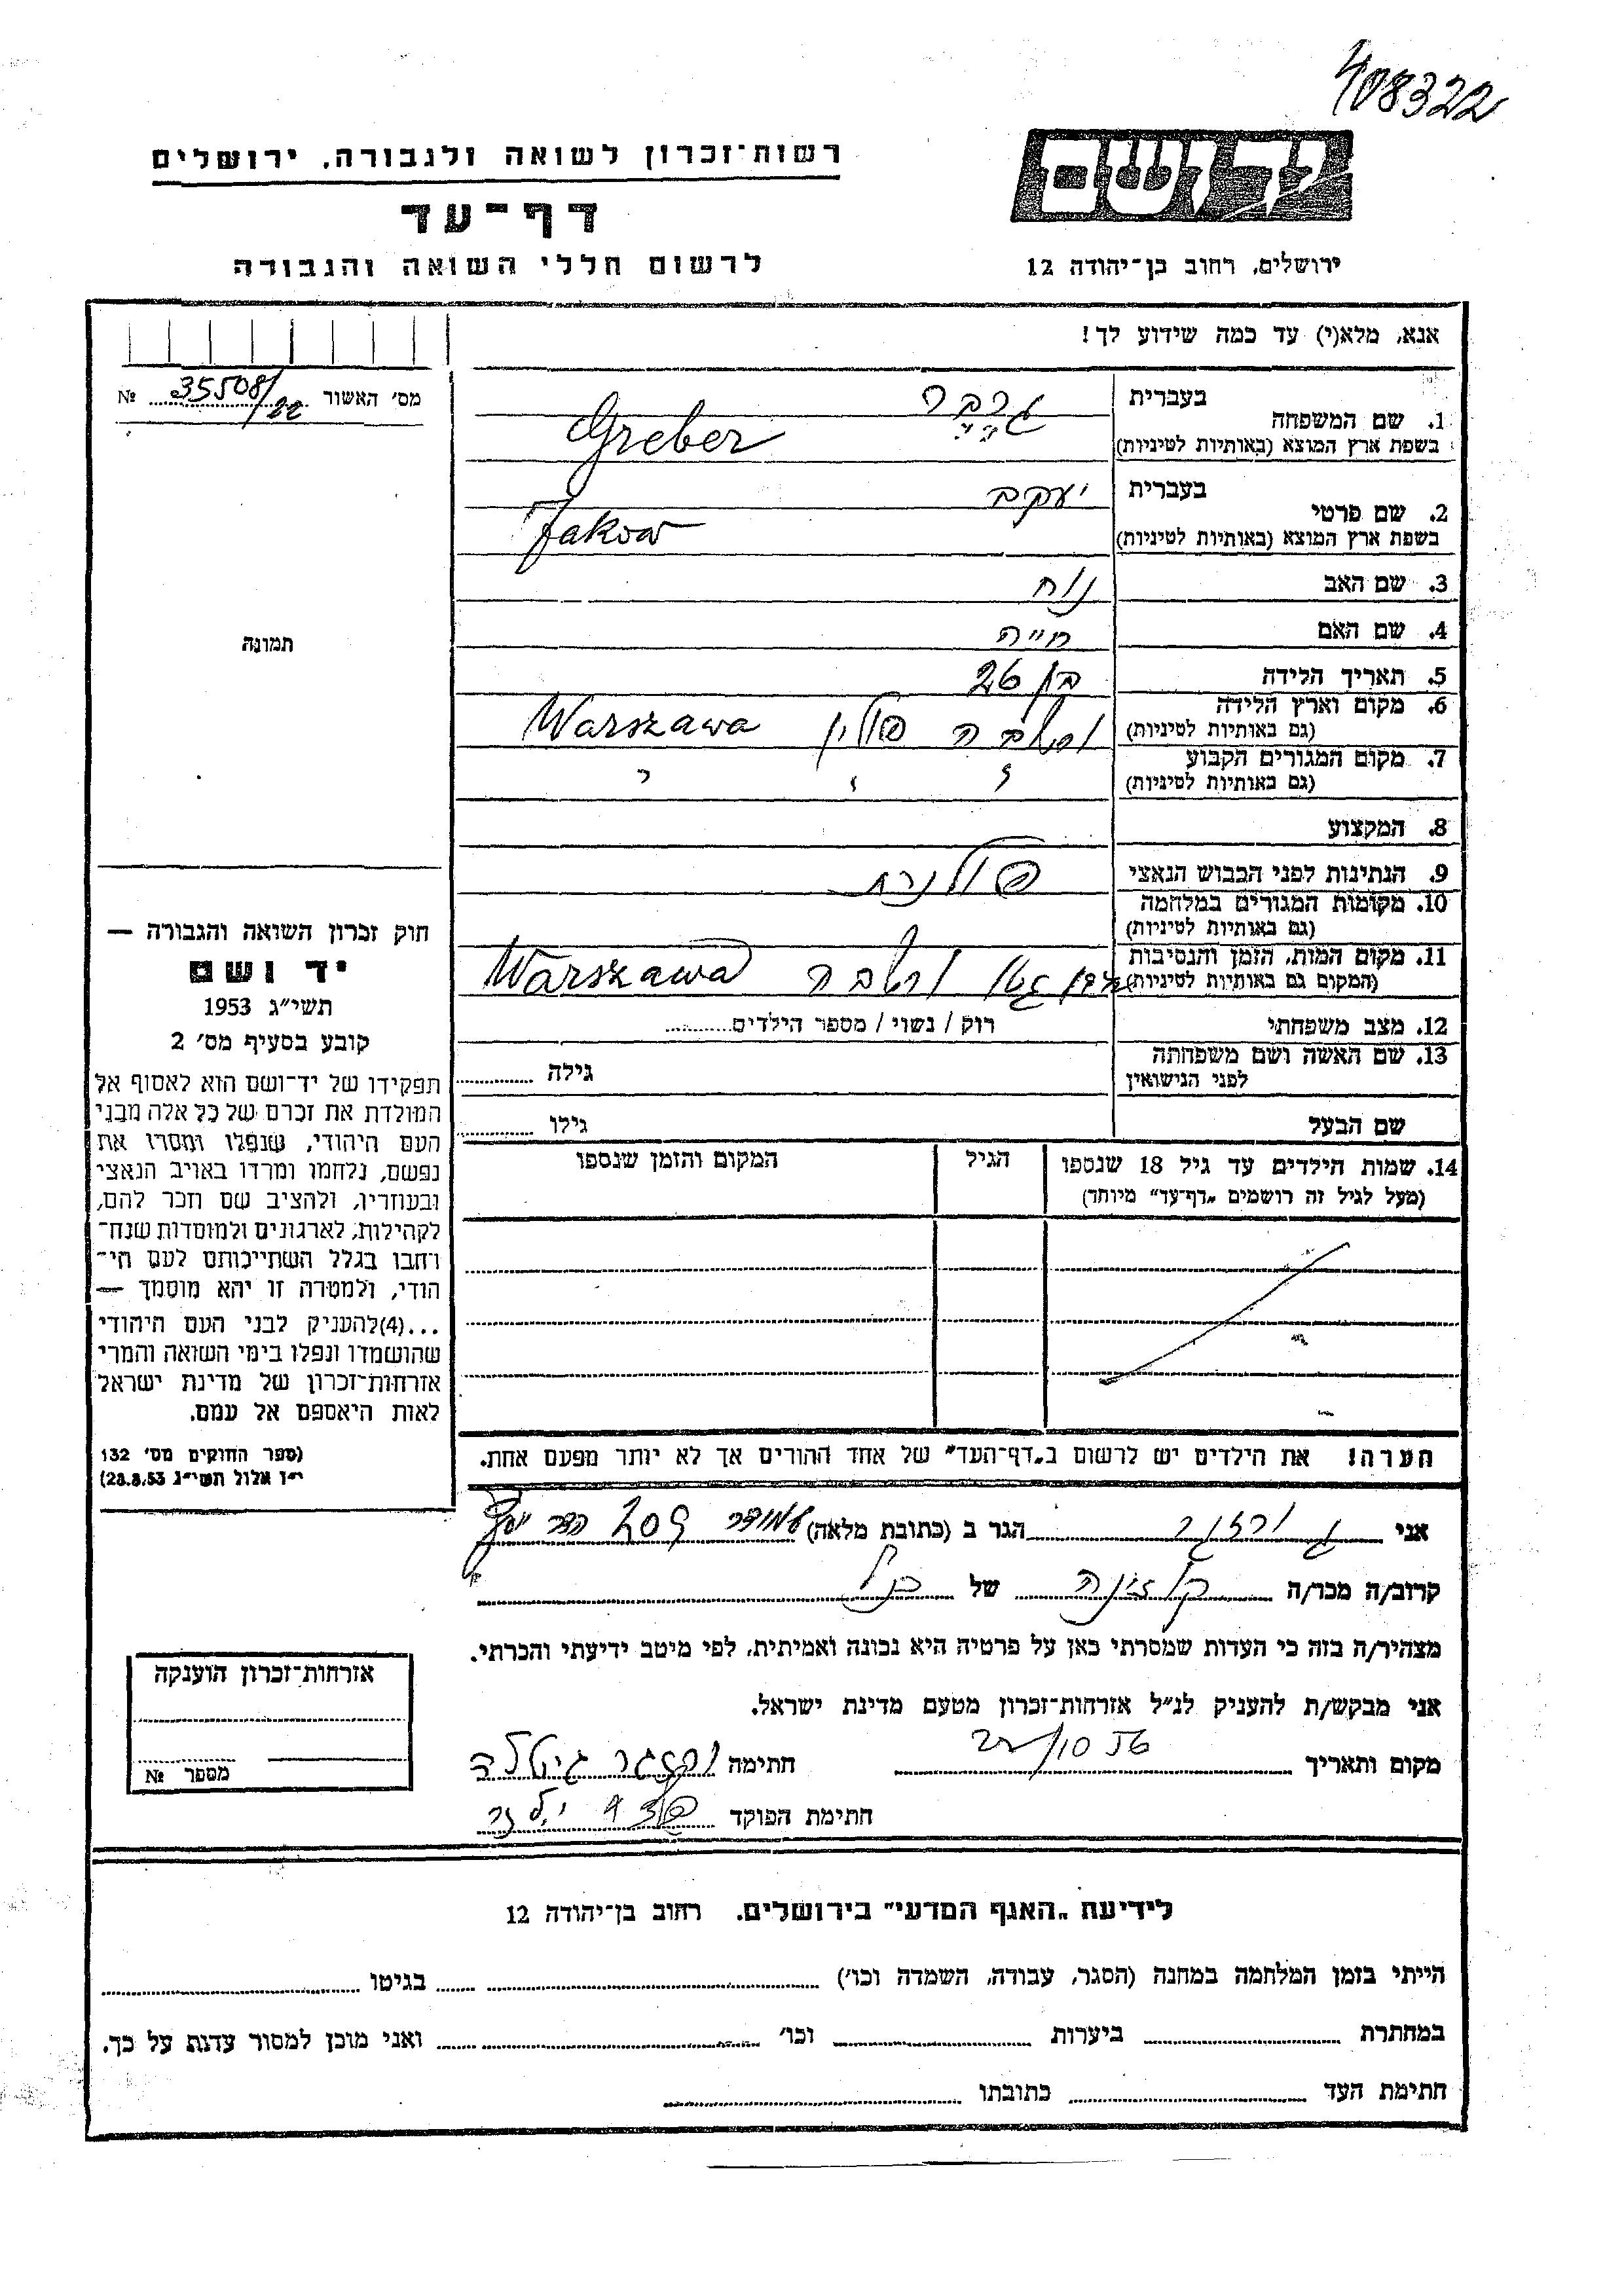 408322
רשות־זכרון לשואה ולגבורה, ירושלים
דף־עד
לרשום חללי השואה והגבורה
יד ושם
ירושלים, רחוב בן־יהודה 12
אנא, מלא(י) עד כמה שידוע לך!
מס׳ האשור 35508/22 №
1. שם המשפחה
בעברית גרבר
בשפת ארץ המוצא (באותיות לטיניות) Greber
2. שם פרטי
בעברית יעקב
בשפת ארץ המוצא (באותיות לטיניות) Jakow
3. שם האב נוח
4. שם האם חייה
5. תאריך הלידה בן 26
6. מקום וארץ הלידה
(גם באותיות לטיניות) ורשבה פולין Warszawa
7. מקום המגורים הקבוע
(גם באותיות לטיניות) " " "
8. המקצוע
9. הנתינות לפני הכבוש הנאצי פולנית
10. מקומות המגורים במלחמה
(גם באותיות לטיניות)
11. מקום המות, הזמן והנסיבות
(המקום גם באותיות לטיניות) גטו ורשבה Warszawa
12. מצב משפחתי רוק / נשוי / מספר הילדים
13. שם האשה ושם משפחתה
לפני הנישואין גילה
שם הבעל גילו
14. שמות הילדים עד גיל 18 שנספו
(מעל לגיל זה רושמים „דף־עד״ מיוחד)
הגיל
המקום והזמן שנספו
הערה! את הילדים יש לרשום ב„דף־העד״ של אחד ההורים אך לא יותר מפעם אחת.
תמונה
חוק זכרון השואה והגבורה —
יד ושם
תשי״ג 1953
קובע בסעיף מס׳ 2
תפקידו של יד־ושם הוא לאסוף אל
המולדת את זכרם של כל אלה מבני
העם היהודי, שנפלו ומסרו את
נפשם, נלחמו ומרדו באויב הנאצי
ובעוזריו, ולהציב שם וזכר להם,
לקהילות, לארגונים ולמוסדות שנח־
רבו בגלל השתייכותם לעם הי־
הודי, ולמטרה זו יהא מוסמך —
...(4) להעניק לבני העם היהודי
שהושמדו ונפלו בימי השואה והמרי
אזרחות־זכרון של מדינת ישראל
לאות היאספם אל עמם.
(ספר החוקים מס׳ 132
י״ז אלול תשי״ג 28.8.53)
אני הגר ב (כתובת מלאה) 209
קרוב/ה מכר/ה של
מצהיר/ה בזה כי העדות שמסרתי כאן על פרטיה היא נכונה ואמיתית, לפי מיטב ידיעתי והכרתי.
אני מבקש/ת להעניק לנ״ל אזרחות־זכרון מטעם מדינת ישראל.
מקום ותאריך 22/10 חתימה גיטלה
חתימת הפוקד
אזרחות־זכרון הוענקה
מספר №
לידיעת „האגף המדעי״ בירושלים, רחוב בן־יהודה 12
הייתי בזמן המלחמה במחנה (הסגר, עבודה, השמדה וכו׳) בגיטו
במחתרת ביערות וכו׳ ואני מוכן למסור עדות על כך.
חתימת העד כתובתו